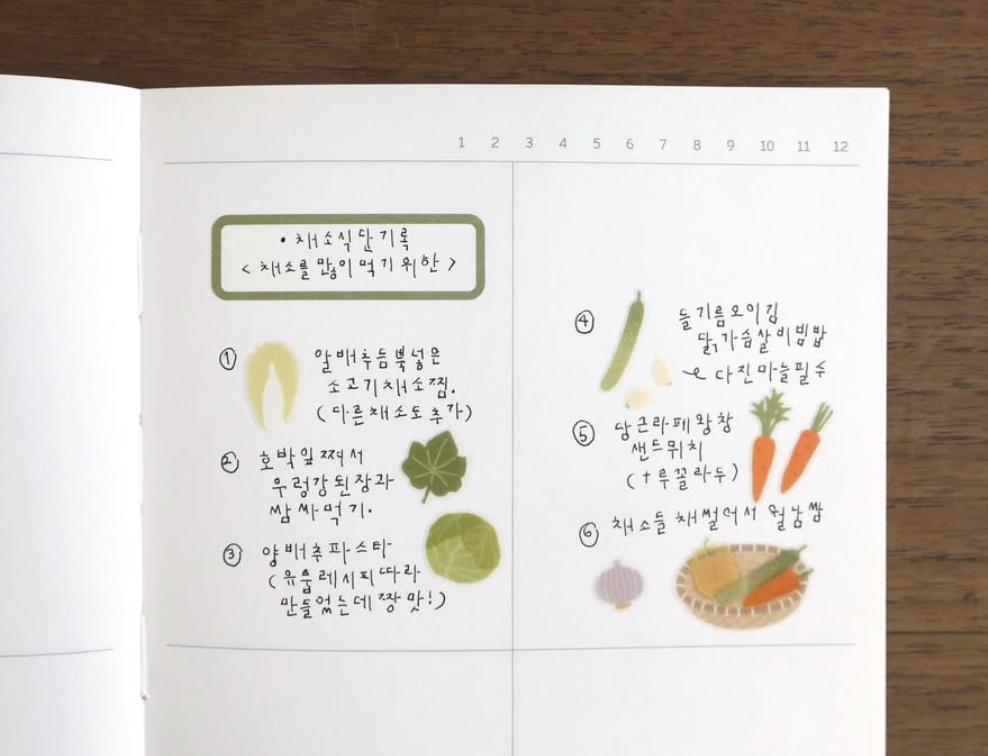 1 2 3 4 5 6 7 8 9 10 11 12
• 채소식단기록
< 채소를 많이 먹기 위한 >
① 알배추듬뿍넣은
소고기채소찜.
(다른채소도 추가)
② 호박잎 쪄서
우렁강된장과
쌈싸먹기.
③ 양배추파스타
(유튭레시피따라
만들었는데 짱맛!)
④ 들기름오이김
닭가슴살비빔밥
다진마늘필수
⑤ 당근라페왕창
샌드위치
(+루꼴라두)
⑥ 채소들 채썰어서 월남쌈